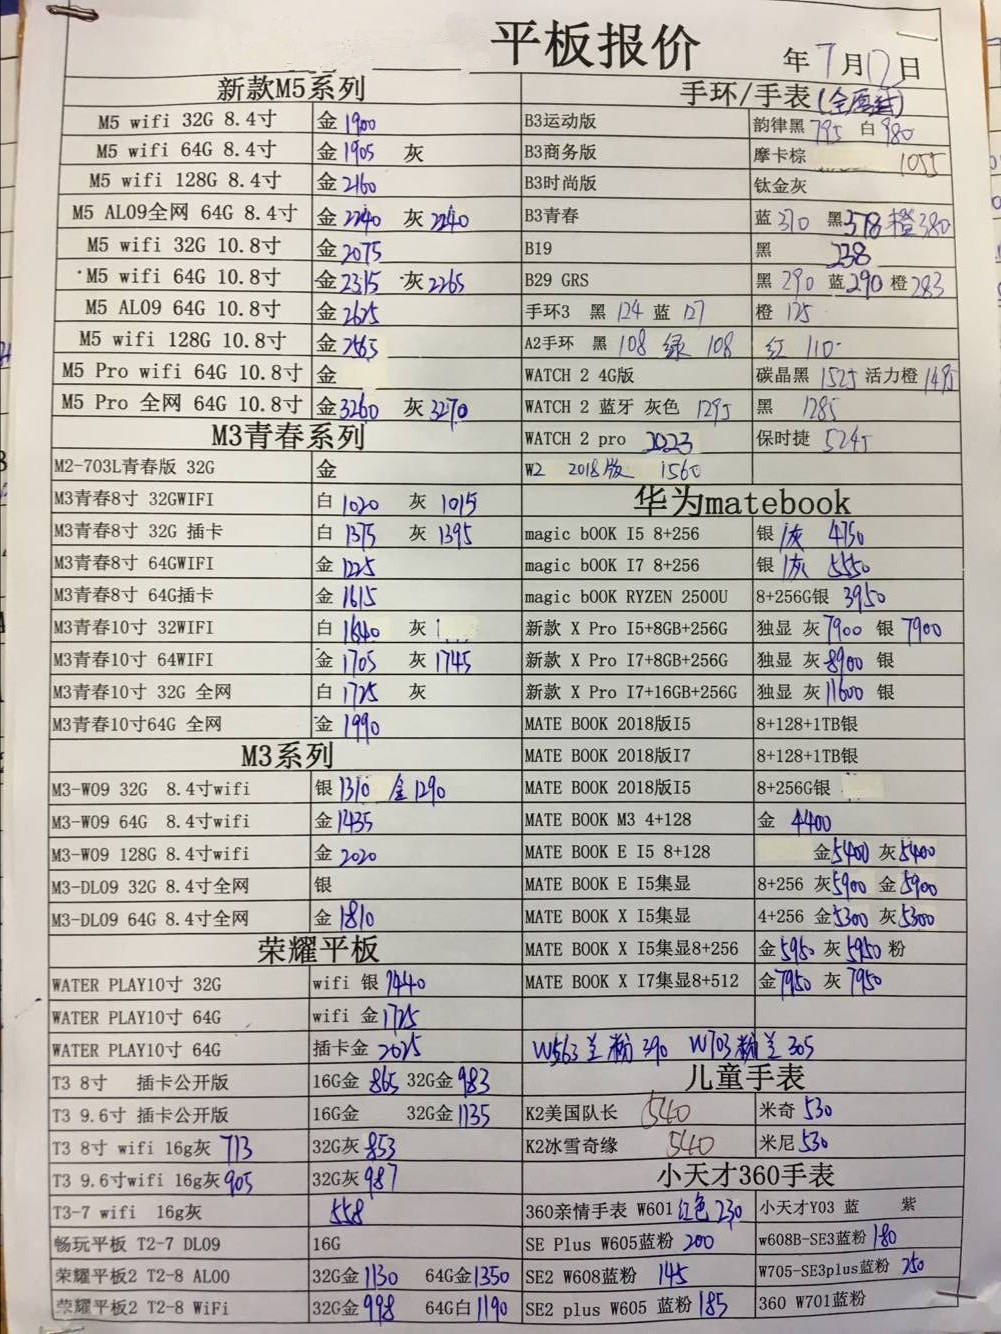 平板报价
年7月12日
新款M5系列
M5 wifi 32G 8.4寸 金1900
M5 wifi 64G 8.4寸 金1905 灰
M5 wifi 128G 8.4寸 金2160
M5 AL09全网 64G 8.4寸 金2240 灰2240
M5 wifi 32G 10.8寸 金2075
M5 wifi 64G 10.8寸 金2315 灰2265
M5 AL09 64G 10.8寸 金2625
M5 wifi 128G 10.8寸 金2565
M5 Pro wifi 64G 10.8寸 金
M5 Pro 全网 64G 10.8寸 金3260 灰3270
M3青春系列
M2-703L青春版 32G 金
M3青春8寸 32GWIFI 白1020 灰1015
M3青春8寸 32G 插卡 白1375 灰1395
M3青春8寸 64GWIFI 金1225
M3青春8寸 64G插卡 金1615
M3青春10寸 32WIFI 白1640 灰
M3青春10寸 64WIFI 金1705 灰1745
M3青春10寸 32G 全网 白1725 灰
M3青春10寸64G 全网 金1990
M3系列
M3-W09 32G 8.4寸wifi 银1310 金1290
M3-W09 64G 8.4寸wifi 金1435
M3-W09 128G 8.4寸wifi 金2020
M3-DL09 32G 8.4寸全网 银
M3-DL09 64G 8.4寸全网 金1810
荣耀平板
WATER PLAY10寸 32G wifi 银1440
WATER PLAY10寸 64G wifi 金1725
WATER PLAY10寸 64G 插卡金 2025
T3 8寸 插卡公开版 16G金 865 32G金983
T3 9.6寸 插卡公开版 16G金 32G金1135
T3 8寸 wifi 16g灰 713 32G灰853
T3 9.6寸wifi 16g灰905 32G灰987
T3-7 wifi 16g灰 558
畅玩平板 T2-7 DL09 16G
荣耀平板2 T2-8 AL00 32G金1130 64G金1350
荣耀平板2 T2-8 WiFi 32G金998 64G白1190
手环/手表(全原封)
B3运动版 韵律黑 795 白 980
B3商务版 摩卡棕 1055
B3时尚版 钛金灰
B3青春 蓝370 黑378 橙380
B19 黑 238
B29 GRS 黑 290 蓝290 橙283
手环3 黑 124 蓝 127 橙 125
A2手环 黑 108 绿 108 红 110
WATCH 2 4G版 碳晶黑 1525 活力橙1495
WATCH 2 蓝牙 灰色 1295 黑 1285
WATCH 2 pro 2023 保时捷 5245
W2 2018版 1560
华为matebook
magic bOOK I5 8+256 银/灰 4750
magic bOOK I7 8+256 银/灰 5550
magic bOOK RYZEN 2500U 8+256G银 3950
新款 X Pro I5+8GB+256G 独显 灰7900 银 7900
新款 X Pro I7+8GB+256G 独显 灰8900 银
新款 X Pro I7+16GB+256G 独显 灰11600 银
MATE BOOK 2018版I5 8+128+1TB银
MATE BOOK 2018版I7 8+128+1TB银
MATE BOOK 2018版I5 8+256G银
MATE BOOK M3 4+128 金 4400
MATE BOOK E I5 8+128 金5400 灰5400
MATE BOOK E I5集显 8+256 灰5900 金5900
MATE BOOK X I5集显 4+256 金5300 灰5300
MATE BOOK X I5集显8+256 金5950 灰5950 粉
MATE BOOK X I7集显8+512 金7950 灰 7950
W563 兰 粉 390 W703 粉 兰 305
儿童手表
K2美国队长 540 米奇 530
K2冰雪奇缘 540 米尼530
小天才360手表
360亲情手表 W601红色 230 小天才Y03 蓝 紫
SE Plus W605蓝粉 200 w608B-SE3蓝粉 180
SE2 W608蓝粉 145 W705-SE3plus蓝粉 250
SE2 plus W605 蓝粉 185 360 W701蓝粉